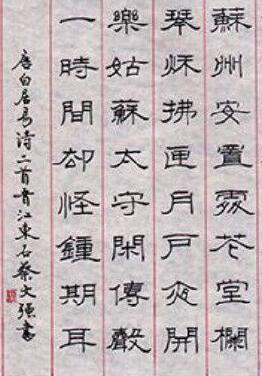 蘇州安置花堂欄
琴拂匣月戶夜開
樂姑蘇太守閑傳聲
一時間却怪鍾期耳
唐白居易诗二首晋江東石蔡文强書